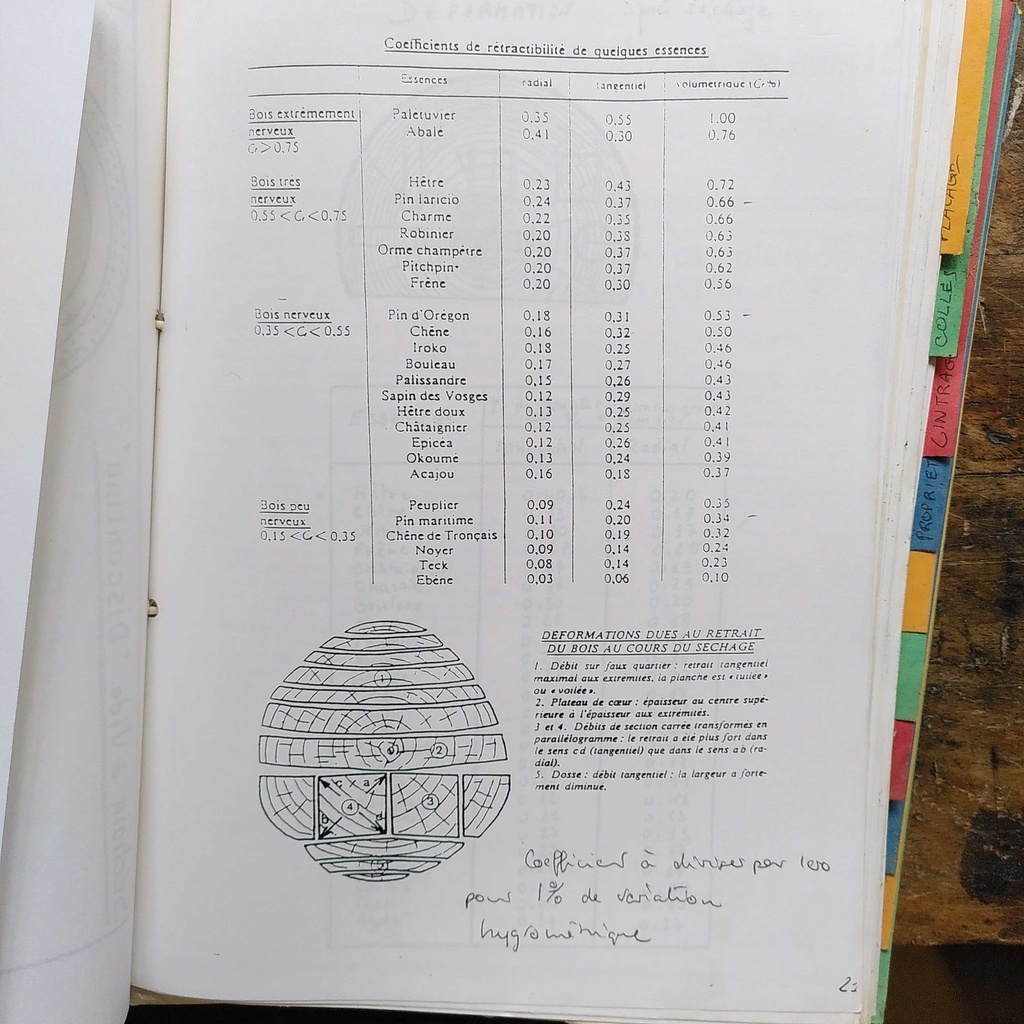 Coefficients de rétractibilité de quelques essences
Essences radial tangentiel volumétrique (Cr%)
Bois extrêmement Palétuvier 0,35 0,55 1.00
nerveux Abale 0,41 0,30 0.76
Cr > 0,75
Bois tres Hêtre 0,23 0,43 0,72
nerveux Pin laricio 0,24 0,37 0.66 -
0,55 < Cr < 0,75 Charme 0,22 0,35 0,66
Robinier 0,20 0,38 0,63
Orme champêtre 0,20 0,37 0,63
Pitchpin 0,20 0,37 0,62
Frêne 0,20 0,30 0,56
Bois nerveux Pin d'Orégon 0,18 0,31 0,53 -
0,35 < Cr < 0,55 Chêne 0,16 0,32 0,50
Iroko 0,18 0,25 0,46
Bouleau 0,17 0,27 0,46
Palissandre 0,15 0,26 0,43
Sapin des Vosges 0,12 0,29 0,43
Hêtre doux 0,13 0,25 0,42
Châtaignier 0,12 0,25 0,41
Epicéa 0,12 0,26 0,41
Okoumé 0,13 0,24 0,39
Acajou 0,16 0,18 0,37
Bois peu Peuplier 0,09 0,24 0,35
nerveux Pin maritime 0,11 0,20 0,34 -
0,15 < Cr < 0,35 Chêne de Tronçais 0,10 0,19 0,32
Noyer 0,09 0,14 0,24
Teck 0,08 0,14 0,23
Ebène 0,03 0,06 0,10
DEFORMATIONS DUES AU RETRAIT
DU BOIS AU COURS DU SECHAGE
1. Débit sur faux quartier : retrait tangentiel
maximal aux extrémités, la planche est « tuilée »
ou « voilée ».
2. Plateau de cœur : épaisseur au centre supé-
rieure à l'épaisseur aux extrémités.
3 et 4. Débits de section carrée transformés en
parallélogramme : le retrait a été plus fort dans
le sens cd (tangentiel) que dans le sens ab (ra-
dial).
5. Dosse : débit tangentiel : la largeur a forte-
ment diminué.
1
2
c a
4 3
b d
5
Coefficient à diviser par 100
pour 1% de variation
hygrométrique
PLACAGE
COLLES
CINTRAG
PROPRIET